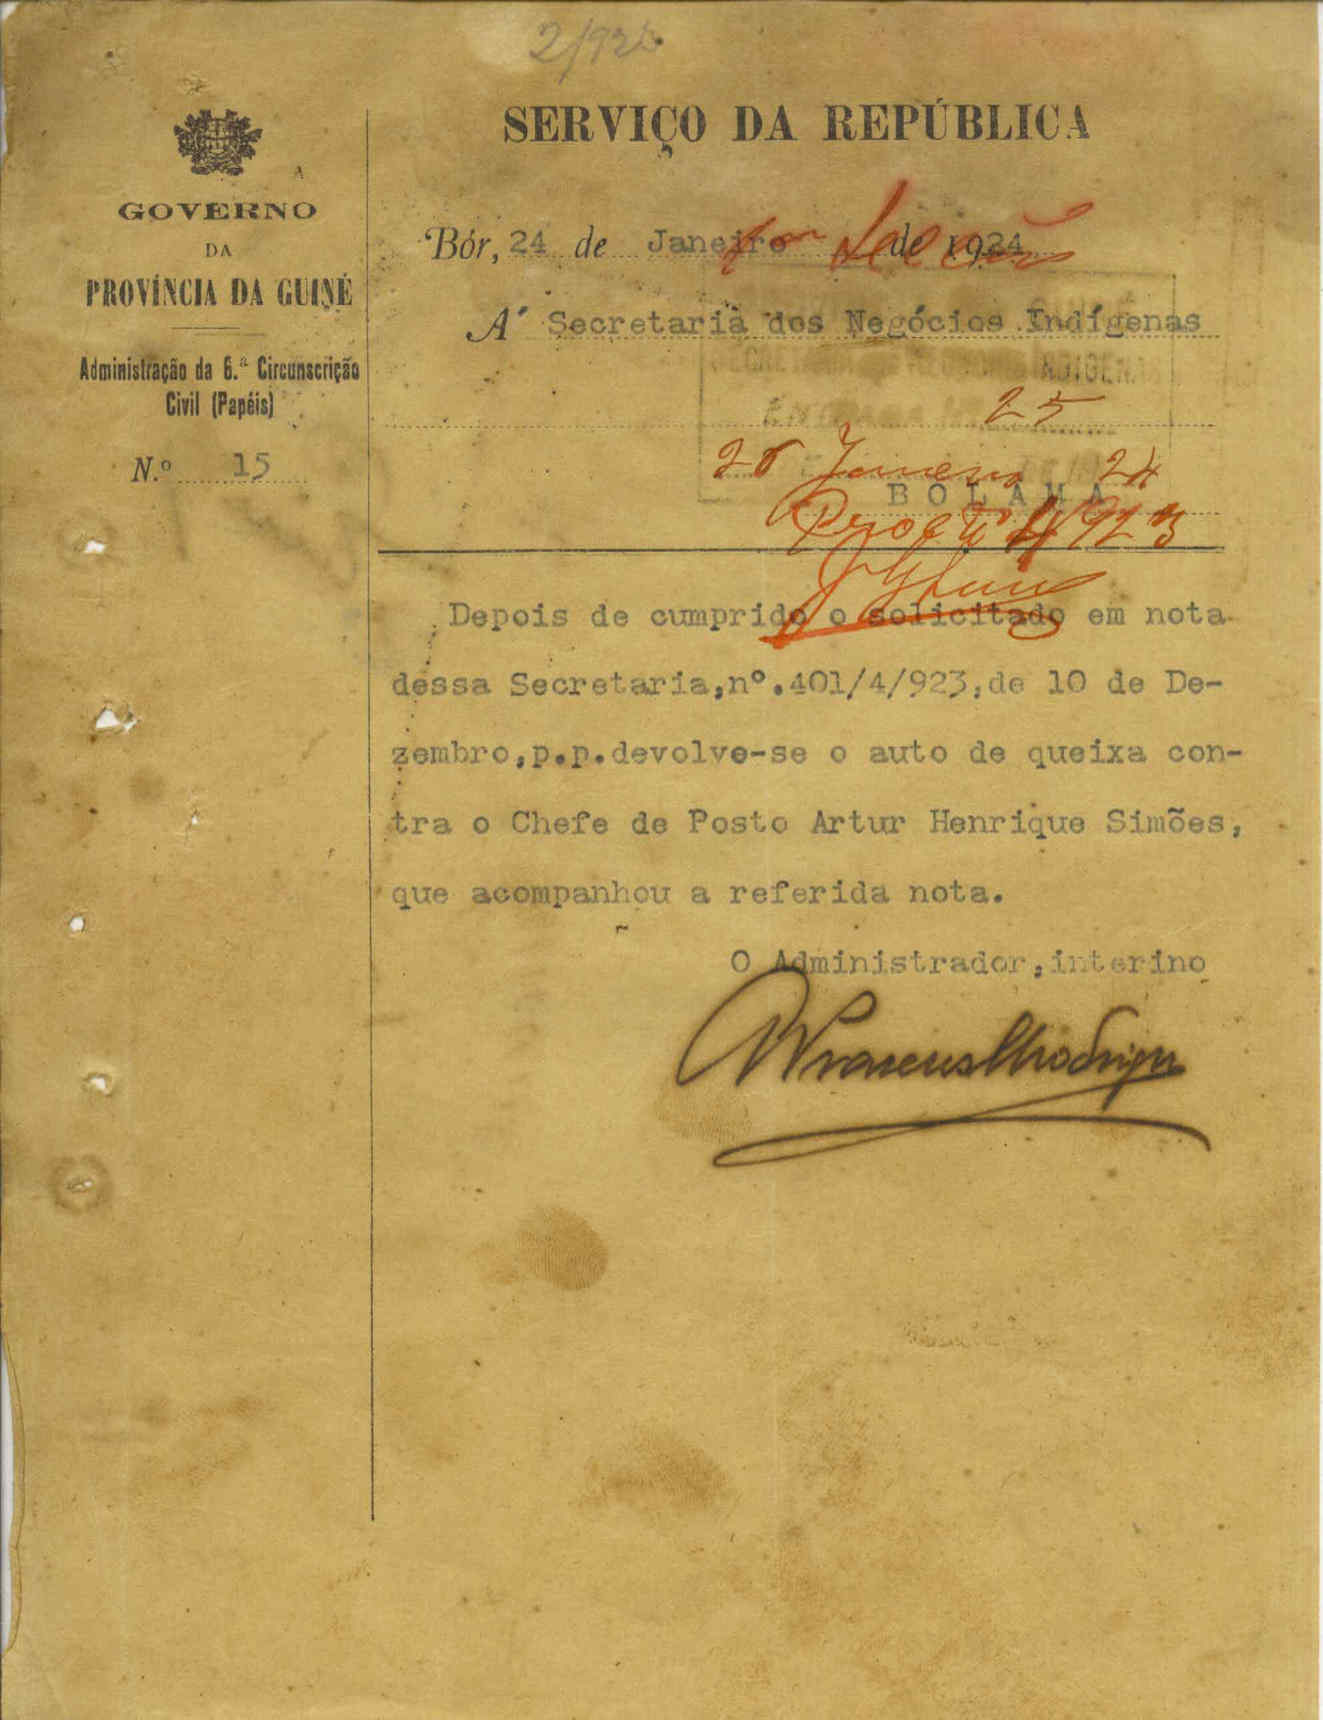 2/923
SERVIÇO DA REPÚBLICA
GOVERNO
DA
PROVÍNCIA DA GUINÉ
Administração da 6.ª Circunscrição
Civil (Papéis)
N.º 15
Bór, 24 de Janeiro de 1924
A' Secretaria dos Negócios Indígenas
INDIGENAS
ENTRADA
25
Janeiro 24
BOLAMA
4/923
Depois de cumprido o solicitado em nota
dessa Secretaria,nº.401/4/923,de 10 de De-
zembro,p.p.devolve-se o auto de queixa con-
tra o Chefe de Posto Artur Henrique Simões,
que acompanhou a referida nota.
O Administrador,interino